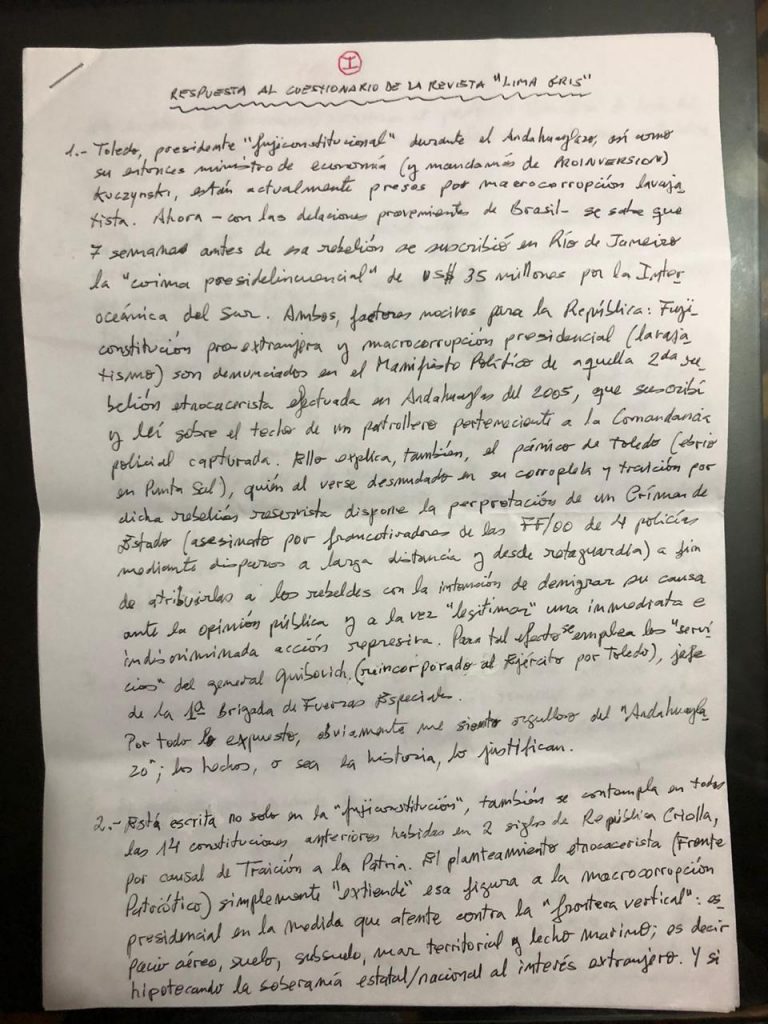 I
RESPUESTA AL CUESTIONARIO DE LA REVISTA "LIMA GRIS"
1.- Toledo, presidente "fujiconstitucional" durante el Andahuaylazo, así como
su entonces ministro de economía (y mandamás de PROINVERSION)
Kuczynski, están actualmente presos por macrocorrupción lavaja
tista. Ahora - con las delaciones provenientes de Brasil - se sabe que
7 semanas antes de esa rebelión se suscribió en Río de Janeiro
la "coima presidelincuencial" de US$ 35 millones por la Inter
oceánica del Sur. Ambos, factores nocivos para la República: Fuji
constitución pro extranjera y macrocorrupción presidencial (lavaja
tismo) son denunciados en el Manifiesto Político de aquella 2da re
belión etnocacerista efectuada en Andahuaylas del 2005, que suscribí
y leí sobre el techo de un patrullero perteneciente a la Comandancia
policial capturada. Ello explica, también, el pánico de Toledo (ebrio
en Punta Sal), quién al verse desnudado en su corruptela y traición por
dicha rebelión reservista dispone la perpretación de un Crímen de
Estado (asesinato por francotiradores de las FF/OO de 4 policías
mediante disparos a larga distancia y desde retaguardia) a fin
de atribuirlas a los rebeldes con la intención de denigrar su causa
ante la opinión pública y a la vez "legitimar" una inmediata e
indiscriminada acción represiva. Para tal efecto se emplea los "servi
cios" del general Guibovich, (reincorporado al Ejército por Toledo), jefe
de la 1ª Brigada de Fuerzas Especiales.
Por todo lo expuesto, obviamente me siento orgulloso del "Andahuayla
zo"; los hechos, o sea la historia, lo justifican.
2.- Está escrita no solo en la "fujiconstitución", también se contempla en todas
las 14 constituciones anteriores habidas en 2 siglos de República Criolla,
por causal de Traición a la Patria. El planteamiento etnocacerista (Frente
Patriótico) simplemente "extiende" esa figura a la macrocorrupción
presidencial en la medida que atente contra la "frontera vertical": es
pacio aéreo, suelo, subsuelo, mar territorial y lecho marino; es decir
hipotecando la soberanía estatal/nacional al interés extranjero. Y si